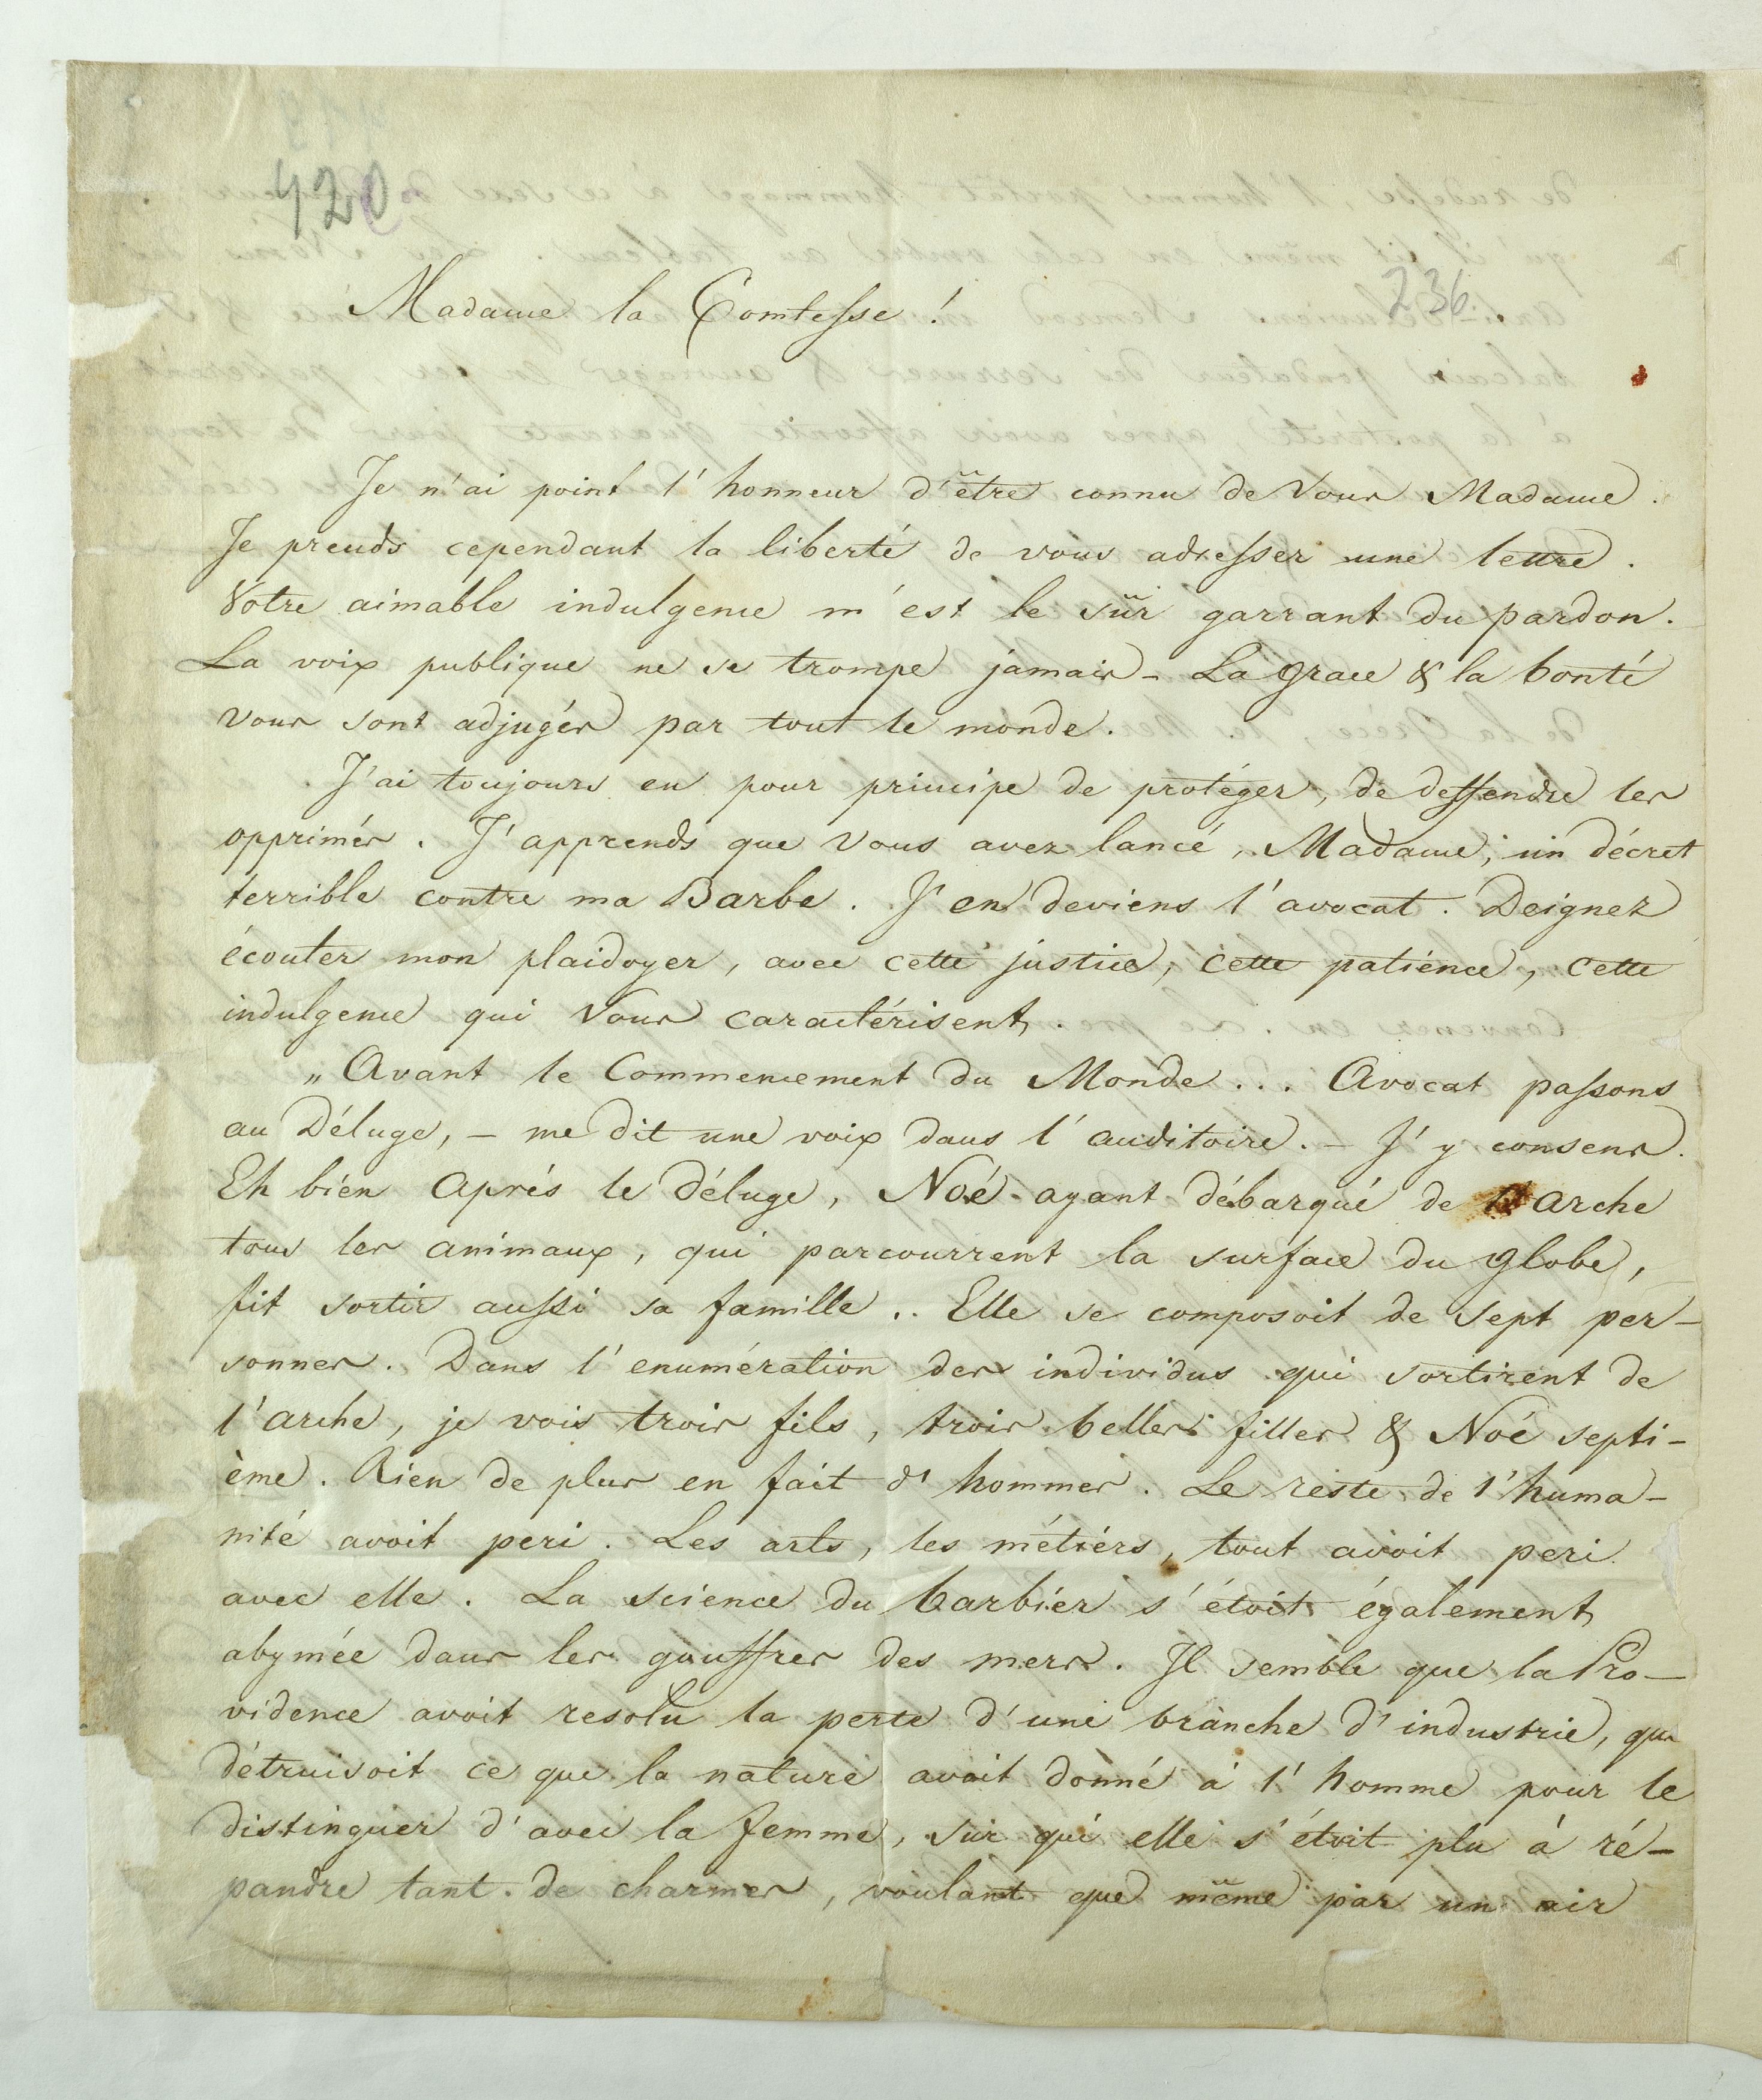 420
236.
Madame la Comtesse !
Je n'ai point l'honneur d'être connu de Vous Madame.
Je prends cependant la liberté de vous adresser une lettre.
Votre aimable indulgence m'est le sûr garrant du pardon.
La voix publique ne se trompe jamais - La grace & la bonté
vous sont adjugés par tout le monde.
J'ai toujours eu pour principe de protéger, de deffendre les
opprimés. J'apprends que Vous avez lancé, Madame, un décret
terrible contre ma Barbe. J'en deviens l'avocat. Deignez
écouter mon plaidoyer, avec cette justice, cette patience, cette
indulgence qui Vous caractérisent.
„ Avant le Commencement du Monde... Avocat passons
au Déluge, - me dit une voix dans l'auditoire. - J'y consens.
Eh bien Aprés le déluge, Noé ayant débarqué de l'arche
tous les animaux, qui parcourrent la surface du globe,
fit sortir aussi sa famille.. Elle se composoit de sept per-
sonnes. Dans l'enumération des individus qui sortirent de
l'arche, je vois trois fils, trois belles filles & Noé septi-
ème. Rien de plus en fait d'hommes. Le reste de l'huma-
nité avoit peri. Les arts, les métiérs, tout avoit peri
avec elle. La science du barbiér s'étoit également
abymée dans les gouffres des mers. Il semble que la Pro-
vidence avoit resolu la perte d'une branche d'industrie, qui
détruisoit ce que la nature avoit donné à l'homme pour le
distinguer d'avec la femme, sur qui elle s'étoit plu à ré-
pandre tant de charmes, voulant que même par un air